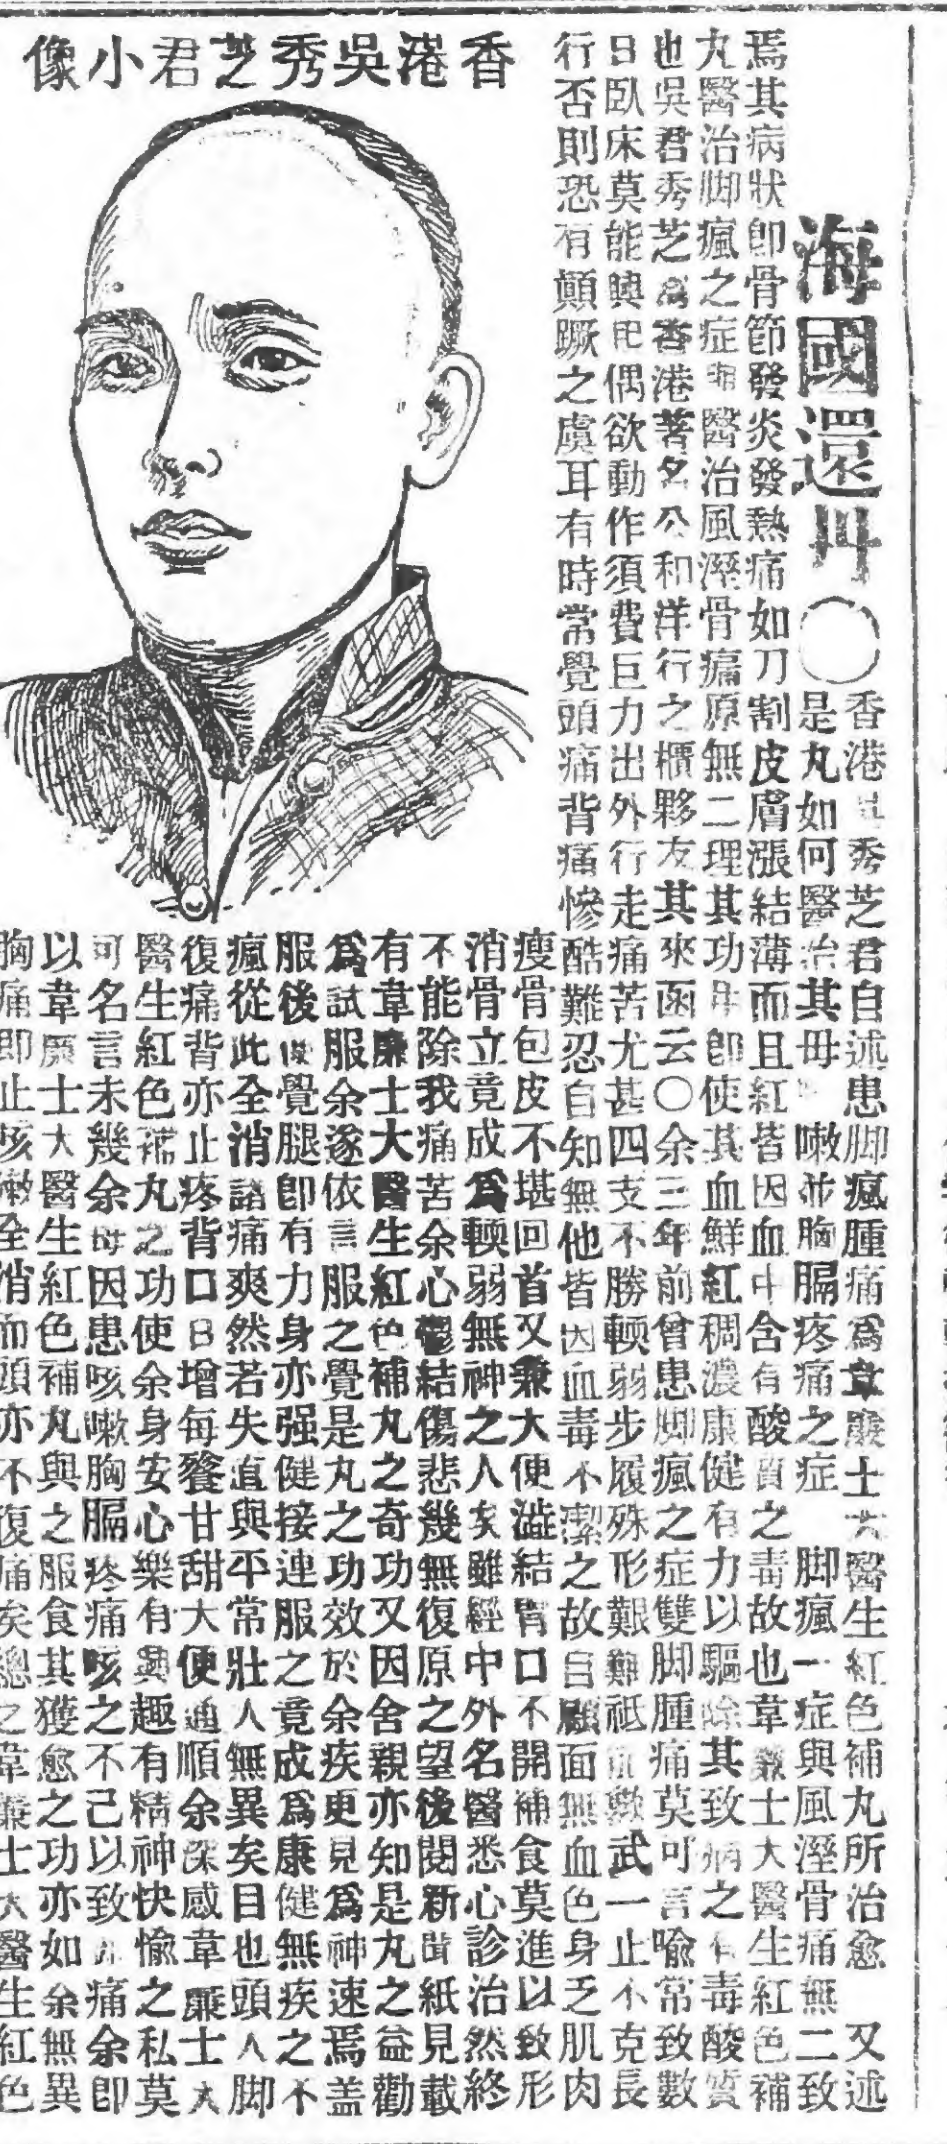 海國還丹○
香港吳秀芝君自述患脚瘋腫痛爲韋廉士大醫生紅色補丸所治愈 又述
是丸如何醫治其母 嗽並胸膈疼痛之症 脚瘋一症與風溼骨痛無二致
焉其病狀卽骨節發炎發熱痛如刀割皮膚漲結薄而且紅皆因血中含有酸質之毒故也韋廉士大醫生紅色補
丸醫治脚瘋之症與醫治風溼骨痛原無二理其功用卽使其血鮮紅稠濃康健有力以驅除其致病之有毒酸質
也吳君秀芝爲香港著名公和洋行之櫃夥友其來函云○余三年前曾患脚瘋之症雙脚腫痛莫可言喻常致數
日臥床莫能興起偶欲動作須費巨力出外行走痛苦尤甚四支不勝輭弱步履殊形艱難祗 數武一止不克長
行否則恐有顚蹶之虞耳有時常覺頭痛背痛慘酷難忍自知無他皆因血毒不潔之故自顧面無血色身乏肌肉
香港吳秀芝君小像
瘦骨包皮不堪回首又兼大便澁結胃口不開補食莫進以致形
消骨立竟成爲輭弱無神之人矣雖經中外名醫悉心診治然終
不能除我痛苦余心鬱結傷悲幾無復原之望後閱新聞紙見載
有韋廉士大醫生紅色補丸之奇功又因舍親亦知是丸之益勸
爲試服余遂依言服之覺是丸之功效於余疾更見爲神速焉盖
服後便覺腿卽有力身亦强健接連服之竟成爲康健無疾之不
瘋從此全消諸痛爽然若失直與平常壯人無異矣目也頭人脚
復痛背亦止疼背口日增每餐甘甜大便通順余深感韋廉士大
醫生紅色補丸之功使余身安心樂有興趣有精神快愉之私莫
可名言未幾余母因患咳嗽胸膈疼痛咳之不己以致 痛余卽
以韋廉士大醫生紅色補丸與之服食其獲愈之功亦如余無異
胸痛即止咳嗽全消而頭亦不復痛矣總之韋廉士大醫生紅色